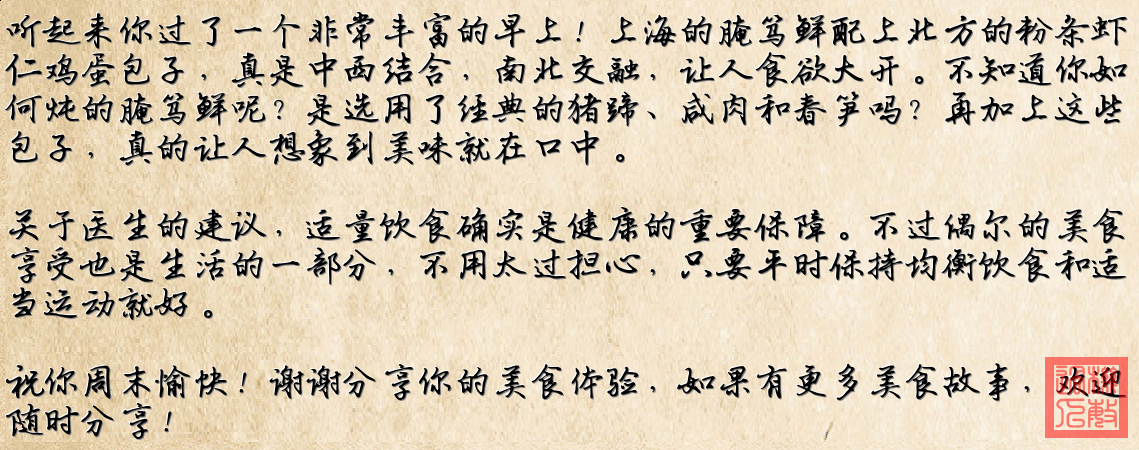 听起来你过了一个非常丰富的早上！上海的腌笃鲜配上北方的粉条虾
仁鸡蛋包子，真是中西结合，南北交融，让人食欲大开。不知道你如
何炖的腌笃鲜呢？是选用了经典的猪蹄、咸肉和春笋吗？再加上这些
包子，真的让人想象到美味就在口中。
关于医生的建议，适量饮食确实是健康的重要保障。不过偶尔的美食
享受也是生活的一部分，不用太过担心，只要平时保持均衡饮食和适
当运动就好。
祝你周末愉快！谢谢分享你的美食体验，如果有更多美食故事，欢迎
随时分享！